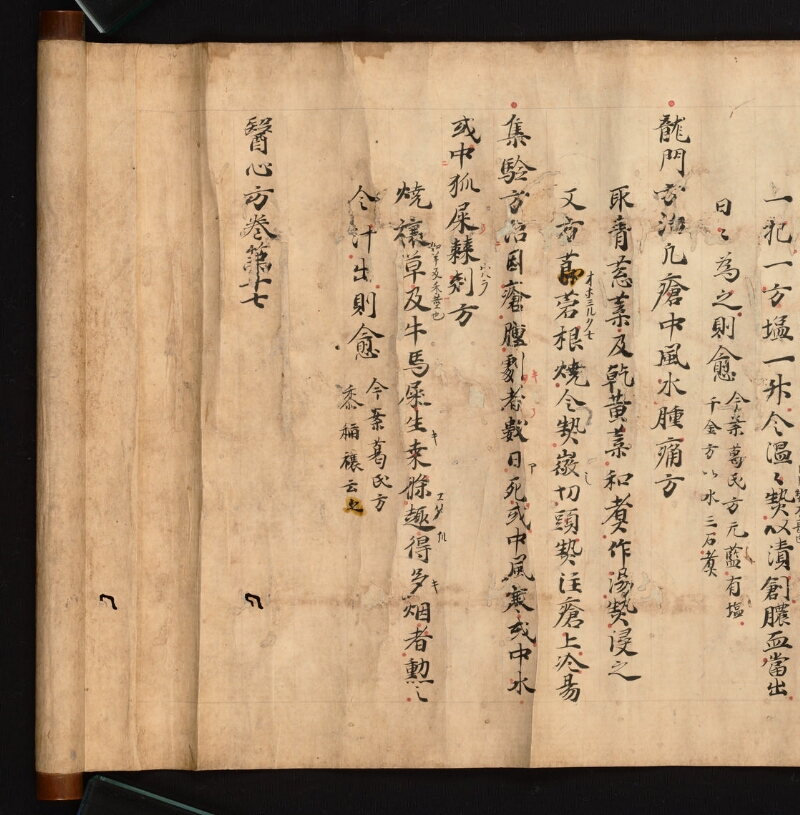 一犯一方塩一升令温〻熱以漬創膿血當出
日〻為之則愈
今案葛氏方元藍有塩
千金方以水三石煮
龍門方治凡瘡中風水腫痛方
取青葱菜及乾黄菜和煮作湯熱浸之
又方菖若根燒令熱
切頭熱注瘡上冷易
集驗方治因瘡腫劇者數日死或中風寒或中水
或中狐屎棘刺方
燒穰草及牛馬屎生桒條趣得多烟者勲之
令汁出則愈
今案葛氏方
黍稲穰云〻
醫心方卷第十七